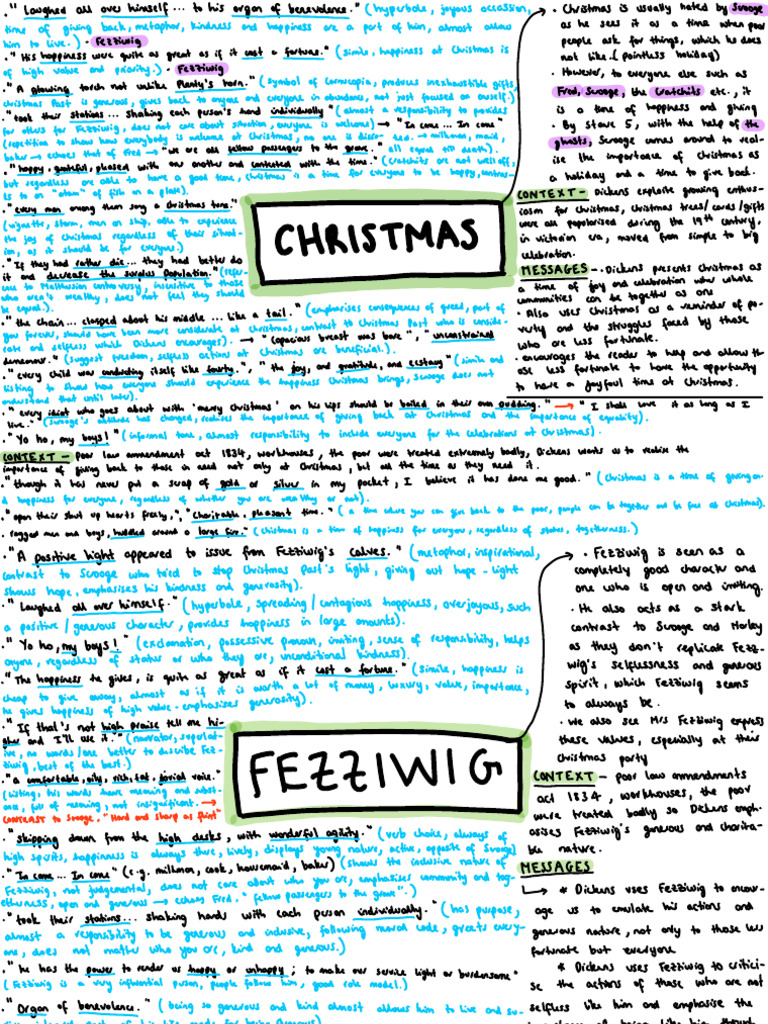 • "Laughed all over himself... to his organ of benevolence." (hyperbole, joyous occassion,
time of giving back, metaphor, kindness and happiness are a part of him, almost allow
him to live.) • Fezziwig
• "His happiness were quite as great as if it cost a fortune." (simile, happiness at Christmas is
of high value and priority.) • Fezziwig
• "A glowing torch not unlike Plenty's horn." (symbol of cornucopia, produces inexhaustible gifts,
Christmas Past is generous, gives back to anyone and everyone in abundance, not just focused on ourself.)
• "took their stations... shaking each person's hand individually (almost a responsibility to provide
for others for Fezziwig, does not care about situation, everyone is welcome) → "In came... In came"
(repetition to show how everybody is welcome at Christmas, no one is discarded. milkman, maid,
baker → echoes that of Fred → "we are all fellow passengers to the grave." all equal till death).
• "happy, grateful, pleased with one another and contented with the time." (Cratchits are not well off,
but regardless are able to have a good time, Christmas is a time for everyone to be happy,
is to an "atom" of fish on a plate).
• "every man among them sang a Christmas tune."
(vignette, storm, men on ship, able to experience
the joy of Christmas regardless of their situat-
ion, as it should be for everyone.)
• "If they had rather die... they had better do
it and decrease the surplus population." (refer-
ence to Malthusian controversy, insensitive to those
who aren't wealthy, does not feel they should
be equal.)
• "the chain... clasped about his middle... like a tail." (emphasises consequences of greed, part of
you forever, should have been more considerate at Christmas, contrast to Christmas Past who is conside-
rate and selfless which Dickens encourages). → "capacious breast was bare", "unconstrained
demeanour." (suggest freedom, selfless actions at Christmas are beneficial.).
• "every child was conducting itself like forty.", "the joy, and gratitude, and ecstasy" (simile and
listing to show how everyone should experience the happiness Christmas brings, scrooge does not
understand that until later).
• "every idiot who goes about with 'merry Christmas' on his lips should be boiled in their own pudding." → "I shall love it as long as I
live." (Scrooge's attitude has changed, realises the importance of giving back at Christmas and the importance of equality).
• "Yo ho, my boys! (informal tone, almost responsibility to include everyone for the celebrations at Christmas).
CONTEXT - poor law ammendment act 1834, workhouses, the poor were treated extremely badly, Dickens wants us to realise the
importance of giving back to those in need not only at Christmas, but all the time as they need it.
• "though it has never put a scrap of gold or silver in my pocket, I believe it has done me good." (Christmas is a time of giving an-
d happiness for everyone, regardless of whether you are wealthy or not).
• "open their shut up hearts freely,", "charitable, pleasant time." (a time where you can give back to the poor, people can be together and be free at Christmas).
• ragged men and boys, huddled around a large fire." (Christmas is a time of happiness for everyone, regardless of status, togetherness.)
CHRISTMAS
• Christmas is usually hated by Scrooge
as he sees it as a time when poor
people ask for things, which he does
not like. (pointless holiday)
• However, to everyone else such as
Fred, Scrooge, the Cratchits etc., it
is a time of happiness and giving
• By Stave 5, with the help of the
ghosts, Scrooge comes around to real-
ise the importance of Christmas as
a holiday and a time to give back.
CONTEXT - Dickens exploits growing enthus-
iasm for Christmas, Christmas trees/cards/gifts
were all popularised during the 19th century,
in victorian era, moved from simple to big
celebration.
MESSAGES - • Dickens presents Christmas as
a time of joy and celebration where whole
communities can be together as one
• Also uses Christmas as a reminder of po-
verty and the struggles faced by those
who are less fortunate.
• encourages the reader to help and allow th-
ose less fortunate to have the opportunity
to have a joyful time at Christmas.
• "A positive light appeared to issue from Fezziwig's calves." (metaphor, inspirational,
contrast to Scrooge who tried to stop Christmas Past's light, giving out hope - light
shows hope, emphasises his kindness and generosity).
• "Laughed all over himself." (hyperbole, spreading/contagious happiness, overjoyous, such
a positive/generous character, provides happiness in large amounts).
• "Yo ho, my boys!" (exclamation, possessive pronoun, inviting, sense of responsibility, helps
anyone, regardless of status or who they are, unconditional kindness).
• "The happiness he gives, is quite as great as if it cost a fortune." (Simile, happiness is
cheap to give away, almost as if it is worth a lot of money, luxury, value, importance,
he gives happiness of high value - emphasises generosity).
• "If that's not high praise tell me hi-
gher and I'll use it." (narrator, superlat-
ive, no words/one better to describe Fez-
ziwig, best of the best.)
• "a comfortable, oily, rich, fat, jovial voice."
(listing, his words have meaning and subst-
ance, full of meaning, not insignificant. →
CONTRAST to Scrooge, "Hard and sharp as flint"
• "skipping down from the high desks, with wonderful agility." (verb choice, always of
high spirits, happiness is always there, lively, displays young nature, active, opposite of Scrooge)
• "In came... In came" (e.g. milkman, cook, housemaid, baker) (shows the inclusive nature of
Fezziwig, not judgemental, does not care about who you are, emphasises community and tog-
etherness, open and generous → echoes Fred. "fellow passengers to the grave".)
• "took their stations... shaking hands with each person individually." (has purpose,
almost a responsibility to be generous and inclusive, following moral code, greets every-
one, does not matter who you are, kind and generous.)
• "he has the power to render us happy or unhappy; to make our service light or burdensome"
(Fezziwig is a very influential person, people follow him, good role model.)
• "Organ of benevolence." (being so generous and kind almost allows him to live and su-
FEZZIWIG
• Fezziwig is seen as a
completely good character and
one who is open and inviting.
• He also acts as a stark
contrast to Scrooge and Marley
as they don't replicate Fezz-
wig's selflessness and generous
spirit, which Fezziwig seems
to always be.
• We also see Mrs Fezziwig express
these values, especially at their
Christmas party
CONTEXT - poor law ammendments
act 1834, workhouses, the poor
were treated badly so Dickens emph-
asises Fezziwig's generous and charita-
ble nature.
MESSAGES
↳ * Dickens uses Fezziwig to encour-
age us to emulate his actions and
generous nature, not only to those less
fortunate but everyone
* Dickens uses Fezziwig to critici-
se the actions of those who are not
selfless like him and emphasise the